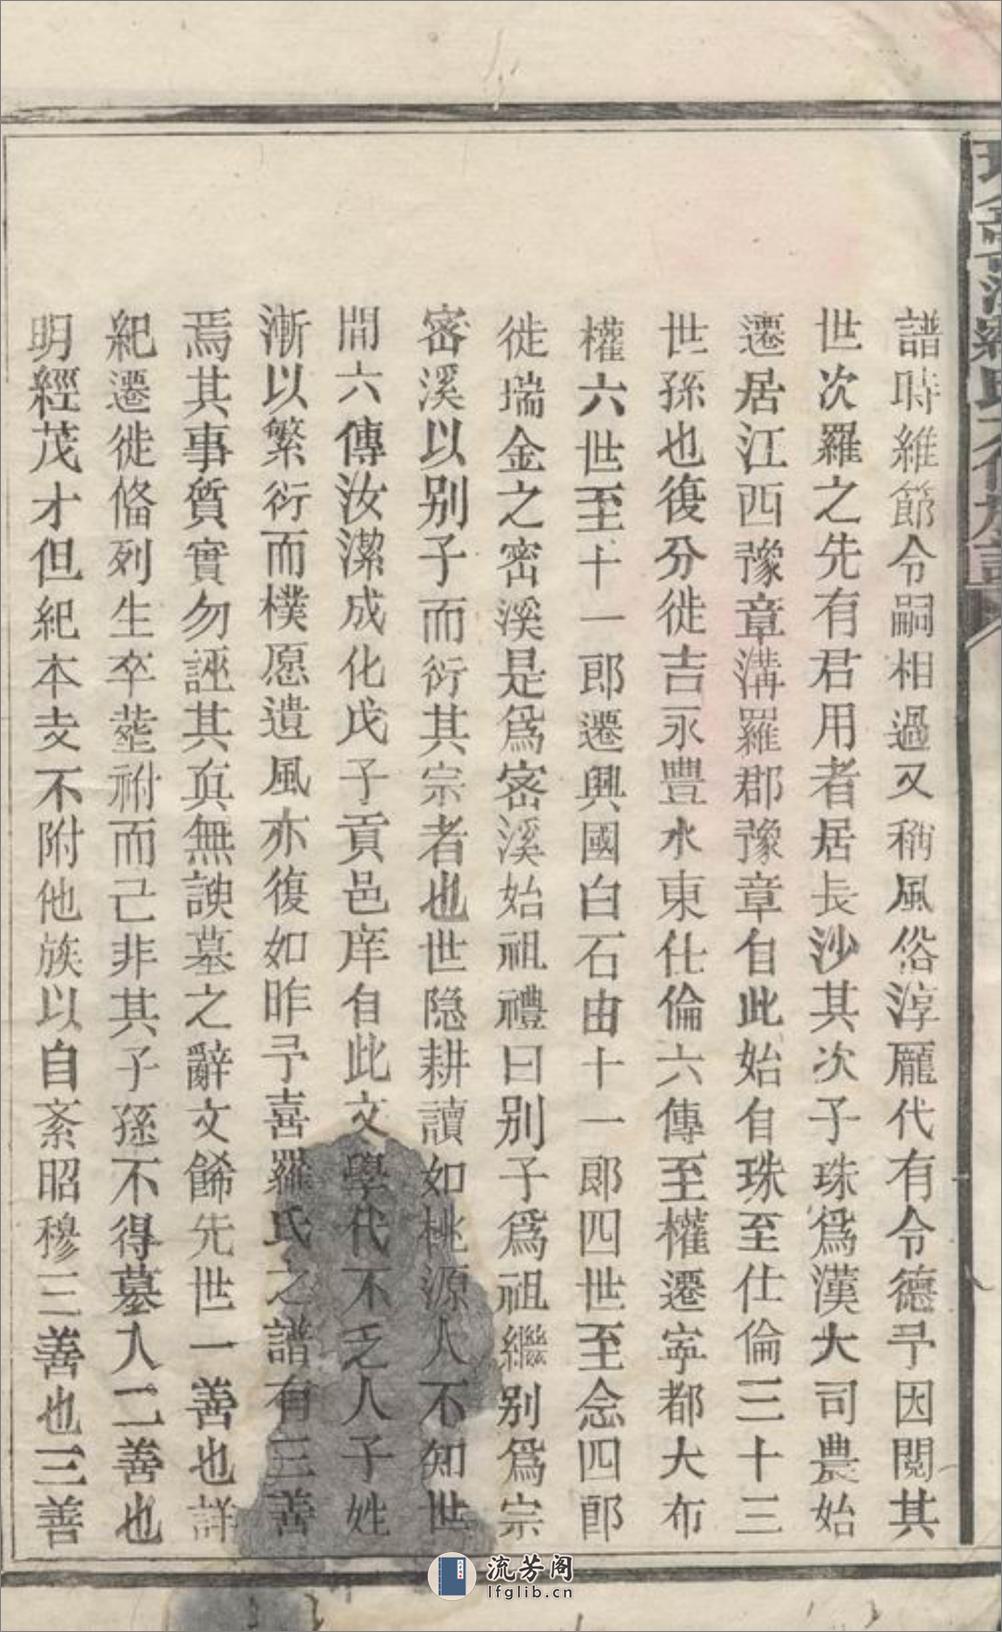 譜時維節令嗣相過又稱風俗淳龐代有令德予因閱其
世次羅之先有君用者居長沙其次子珠爲漢大司農始
遷居江西豫章溝羅郡豫章自此始自珠至仕倫三十三
世孫也復分徙吉永豐水東仕倫六傳至權遷寧都大布
權六世至十一郎遷興國白石由十一郎四世至念四郎
徙瑞金之密溪是爲密溪始祖禮曰别子爲祖繼别爲宗
密溪以别子而衍其宗者也世隐耕讀如桃源人不知世
間六傳汝潔成化戊子貢邑庠自此文學代不乏人子姓
漸以繁衍而樸愿遺風亦復如昨予喜羅氏之譜有三善
焉其事質實勿誣其眞無諛墓之辭文餙先世一善也詳
紀遷徙俻列生卒塟祔而己非其子孫不得墓入二善也
明經茂才但紀本支不附他族以自紊昭穆三善也三善
流芳阁
lfglib.cn